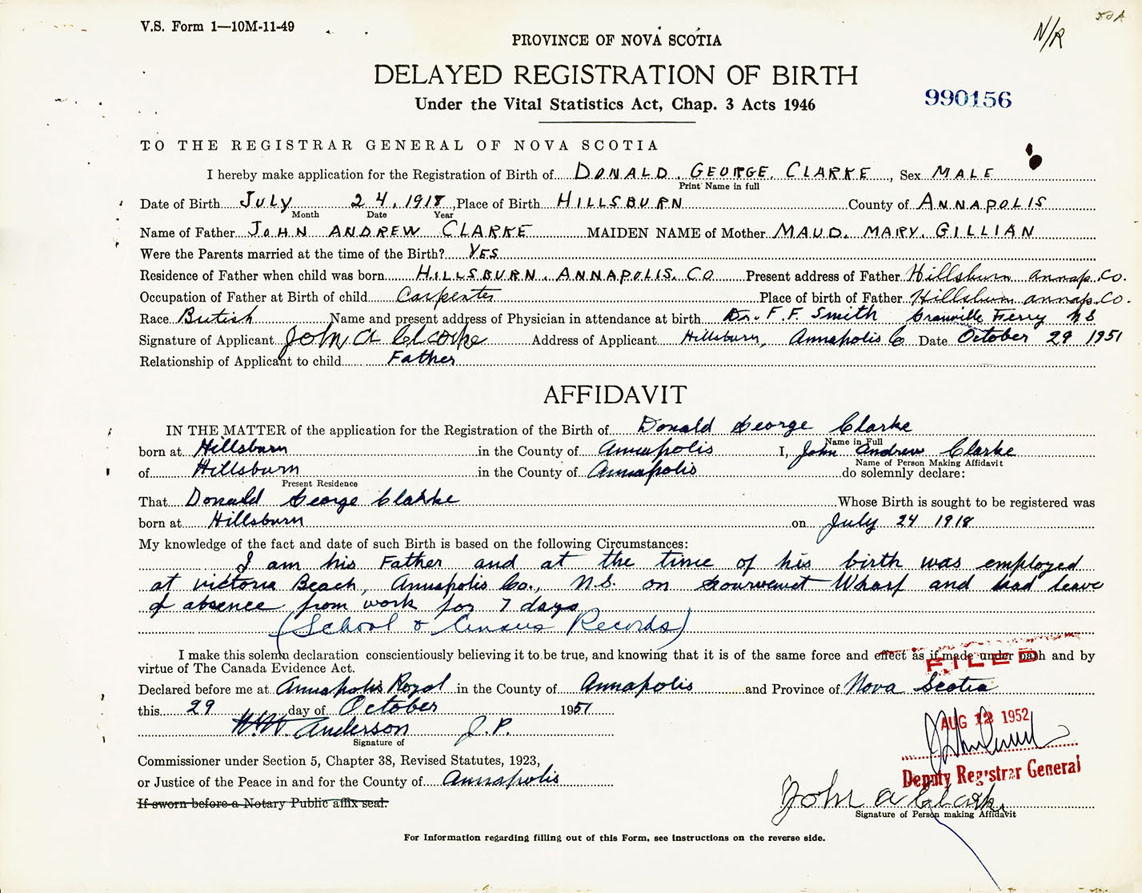 V.S. Form 1—10M-11-49
N/R
50A
PROVINCE OF NOVA SCOTIA
DELAYED REGISTRATION OF BIRTH
Under the Vital Statistics Act, Chap. 3 Acts 1946
990156
TO THE REGISTRAR GENERAL OF NOVA SCOTIA
I hereby make application for the Registration of Birth of DONALD. GEORGE. CLARKE, Sex MALE
Print Name in full
Date of Birth JULY 24, 1918 Place of Birth HILLSBURN County of ANNAPOLIS
Month Date Year
Name of Father JOHN ANDREW CLARKE MAIDEN NAME of Mother MAUD. MARY. GILLIAN
Were the Parents married at the time of the Birth? YES
Residence of Father when child was born HILLSBURN. ANNAPOLIS. CO Present address of Father Hillsburn annap. Co.
Occupation of Father at Birth of child Carpenter Place of birth of Father Hillsburn annap. Co.
Race British Name and present address of Physician in attendance at birth Dr. F. F. Smith Granville Ferry N S
Signature of Applicant John A Clarke Address of Applicant Hillsburn, Annapolis Co Date October 29 1951
Relationship of Applicant to child Father
AFFIDAVIT
IN THE MATTER of the application for the Registration of the Birth of Donald George Clarke
Name in Full
born at Hillsburn in the County of Annapolis I, John Andrew Clarke
Name of Person Making Affidavit
of Hillsburn in the County of Annapolis do solemnly declare:
Present Residence
That Donald George Clarke Whose Birth is sought to be registered was
born at Hillsburn on July 24 1918
My knowledge of the fact and date of such Birth is based on the following Circumstances:
I am his Father and at the time of his birth was employed
at Victoria Beach, Annapolis Co., N.S. on Wharf and had leave
of absence from work for 7 days
(School & Census Records)
I make this solemn declaration conscientiously believing it to be true, and knowing that it is of the same force and effect as if made under oath and by
virtue of The Canada Evidence Act.
FILED
Declared before me at Annapolis Royal in the County of Annapolis and Province of Nova Scotia
this 29 day of October 1951
AUG 12 1952
Anderson J.P.
Signature of
Deputy Registrar General
Commissioner under Section 5, Chapter 38, Revised Statutes, 1923,
or Justice of the Peace in and for the County of Annapolis
If sworn before a Notary Public affix seal.
John A Clarke
Signature of Person making Affidavit
For Information regarding filling out of this Form, see instructions on the reverse side.